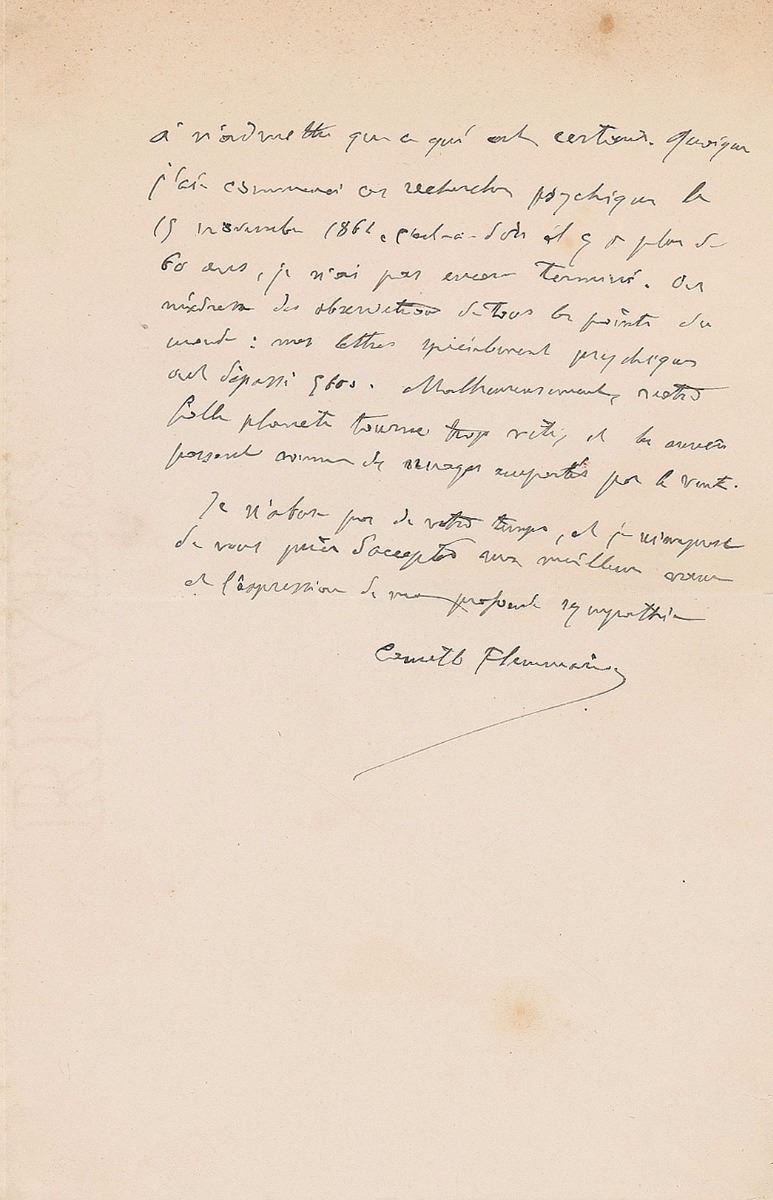 à n'admettre que ce qui est certain. Quoique
j'aie commencé ces recherches psychiques le
15 novembre 1861, c'est-à-dire il y a plus de
60 ans, je n'ai pas encore terminé. On
m'adresse des observations de tous les points du
monde : mes lettres spécialement psychiques
ont dépassé 5600. Malheureusement, notre
folle planète tourne trop vite, et les années
passent comme des nuages emportés par le vent.
Je n'abuse pas de votre temps, et je m'empresse
de vous prier d'accepter mes meilleurs vœux
et l'expression de ma profonde sympathie
Camille Flammarion